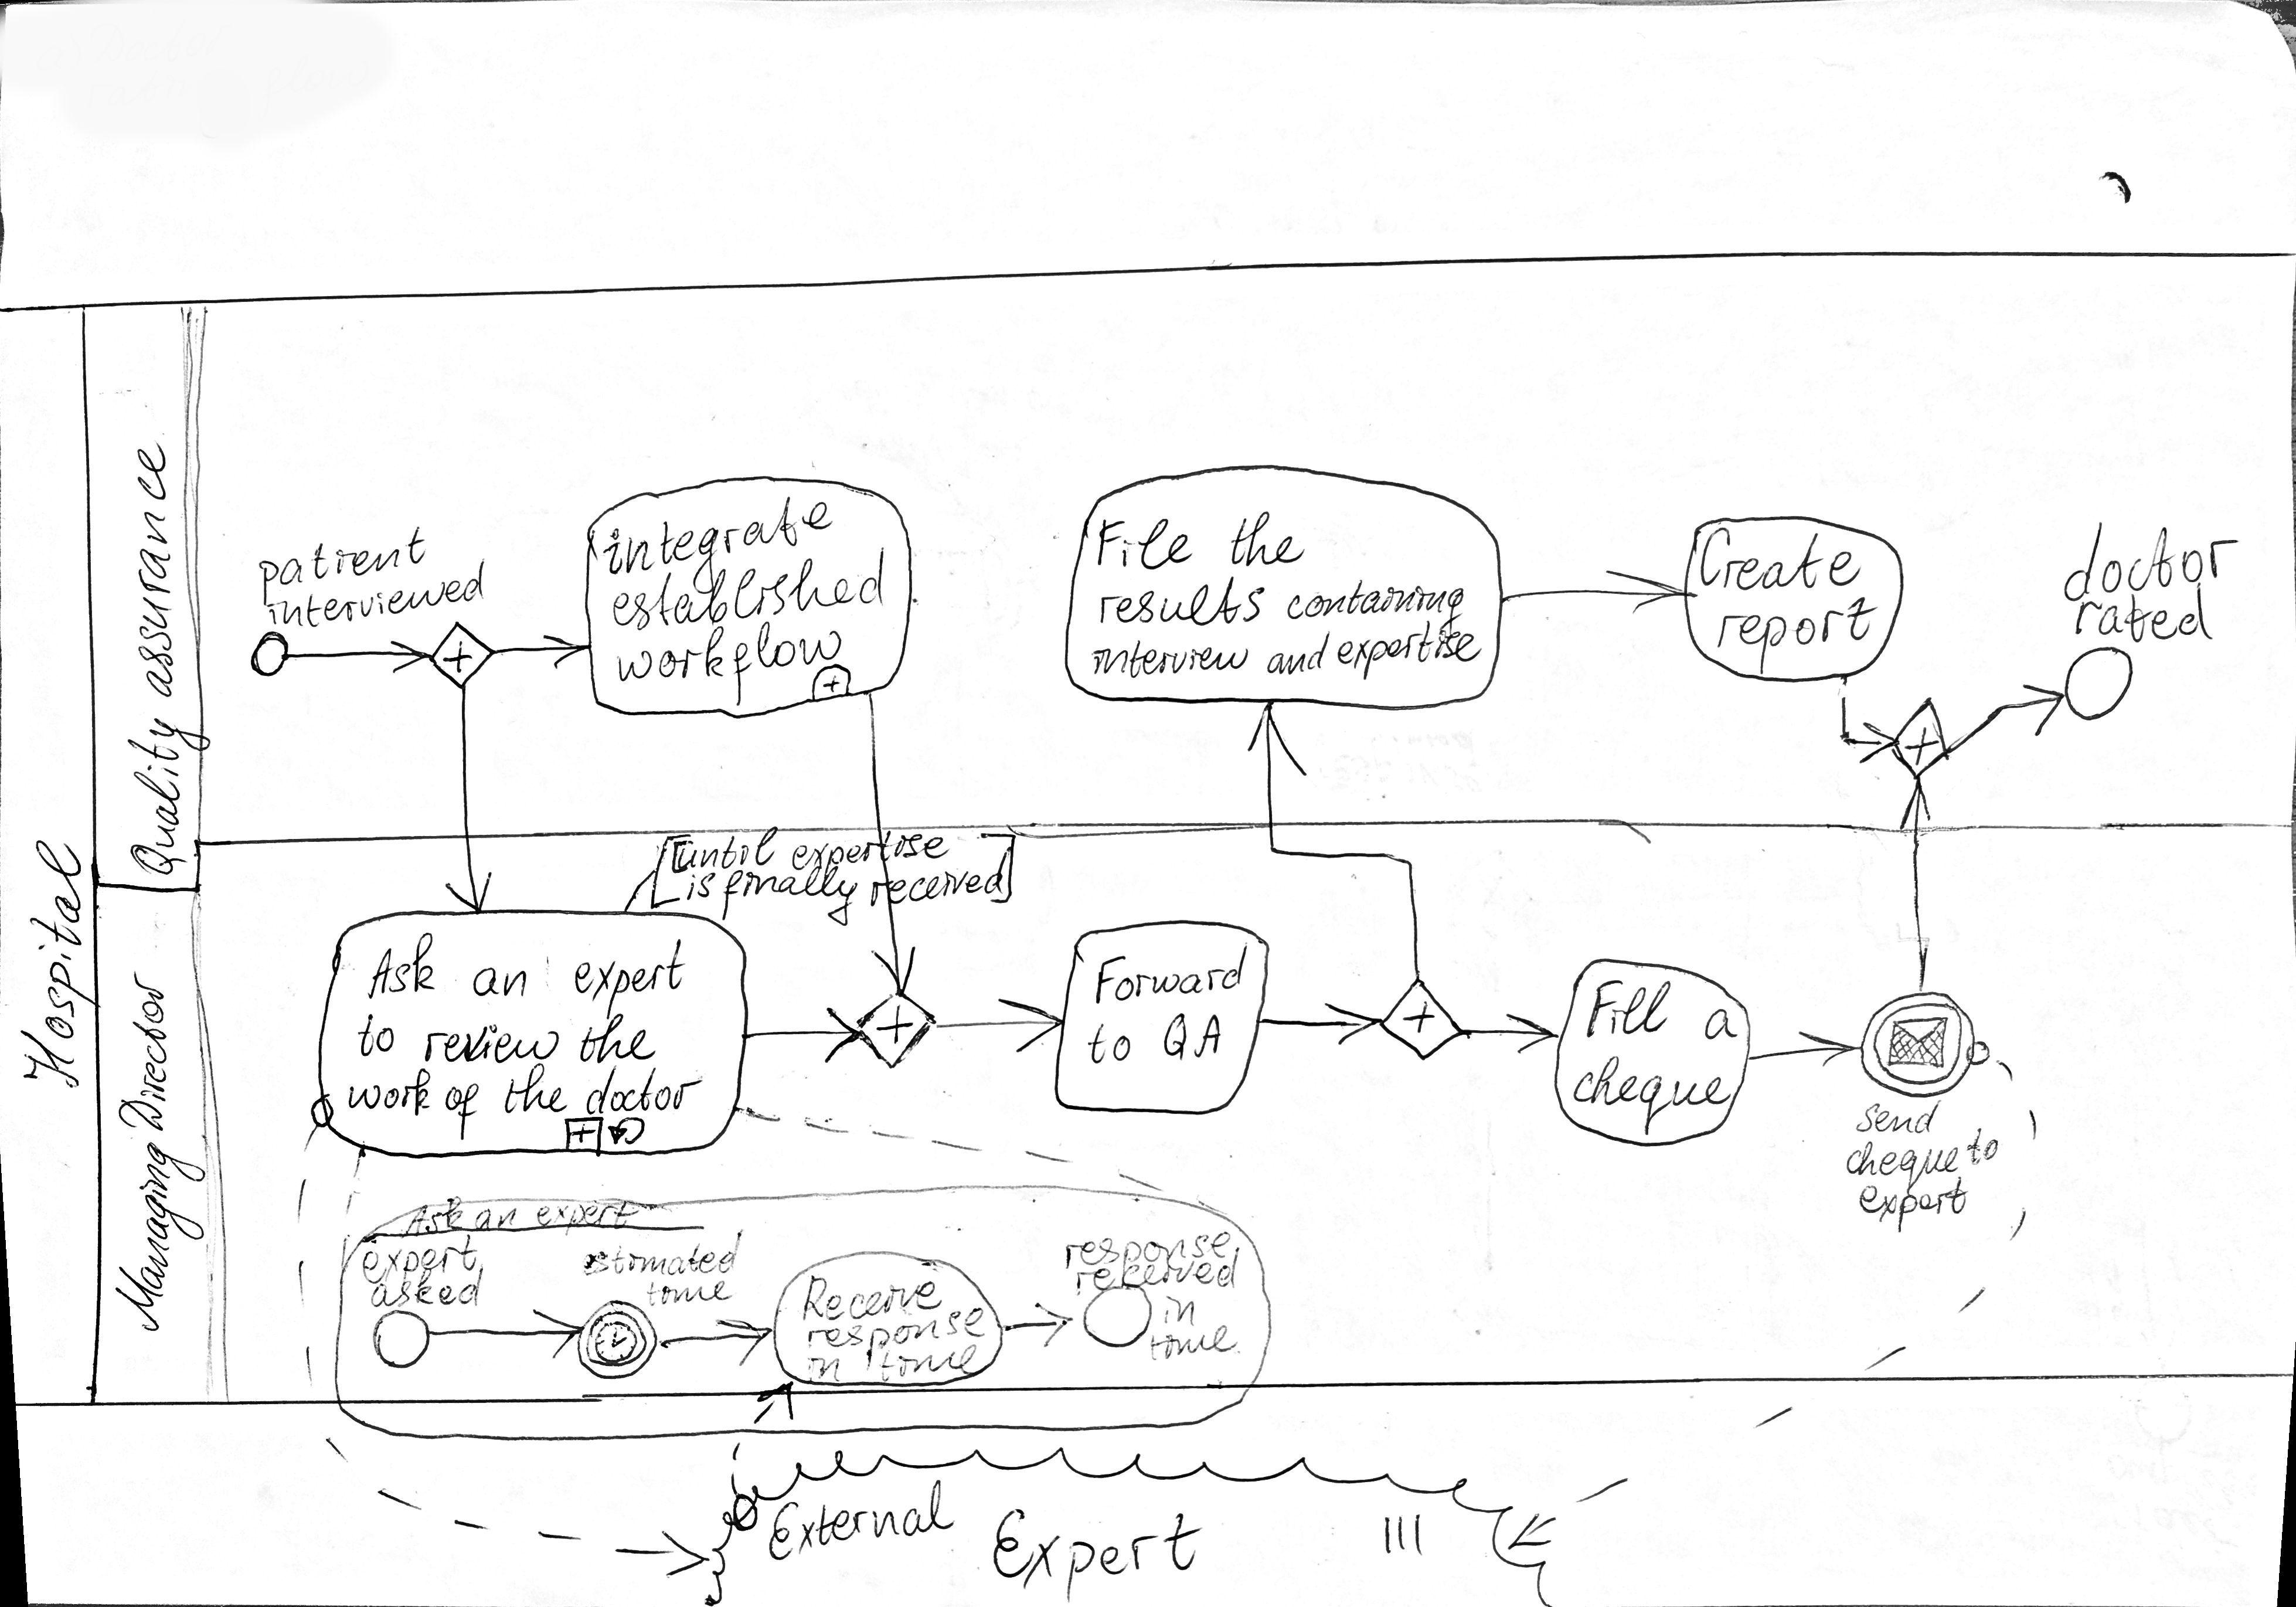 Hospital
Quality assurance
Managing Director
patient
interviewed
integrate
established
workflow
File the
results containing
interview and expertise
Create
report
doctor
rated
[until expertise
is finally received]
Ask an expert
to review the
work of the doctor
Forward
to QA
Fill a
cheque
send
cheque to
expert
Ask an expert
expert
asked
estimated
time
Receive
response
in time
response
received
in
time
External
Expert